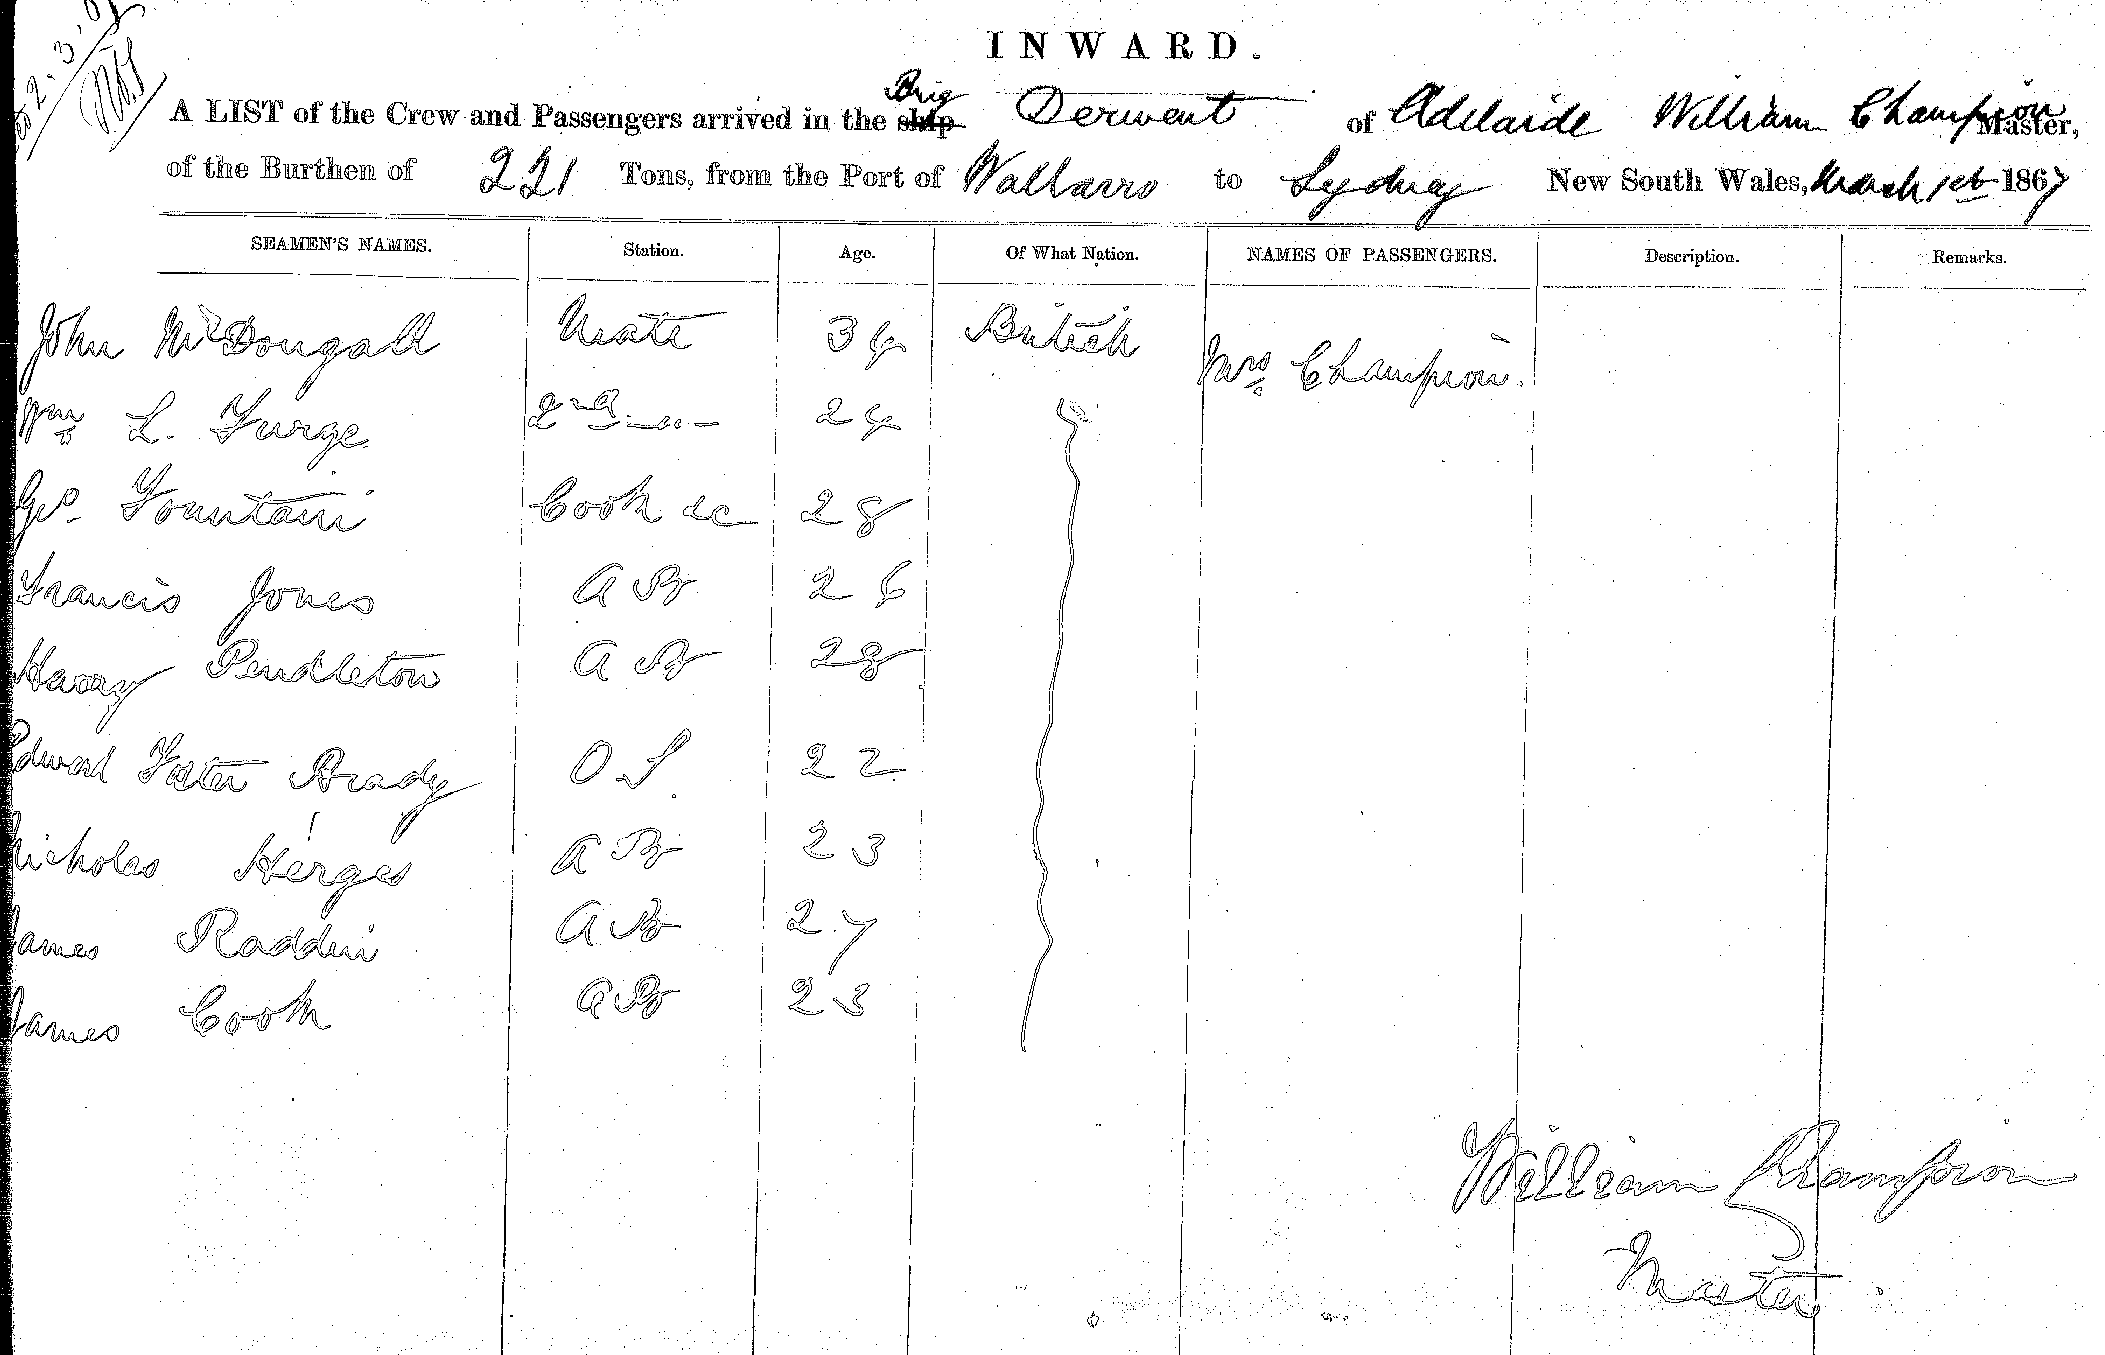 INWARD.
A LIST of the Crew and Passengers arrived in the ship Brig Derwent of Adelaide William Champion Master,
of the Burthen of 221 Tons, from the Port of Wallarro to Sydney New South Wales, March 1st 1867
SEAMEN'S NAMES. Station. Age. Of What Nation. NAMES OF PASSENGERS. Description. Remarks.
John McDougall Mate 34 British Mrs Champion.
Wm L. Furge 2nd Do 24
Geo. Fountain Cook &c 28
Francis Jones A B 26
Harry Pendleton A B 28
Edward Foster Brady O S 22
Nicholas Herges A B 23
James Raddin A B 27
James Cook A B 23
William Champion
Master